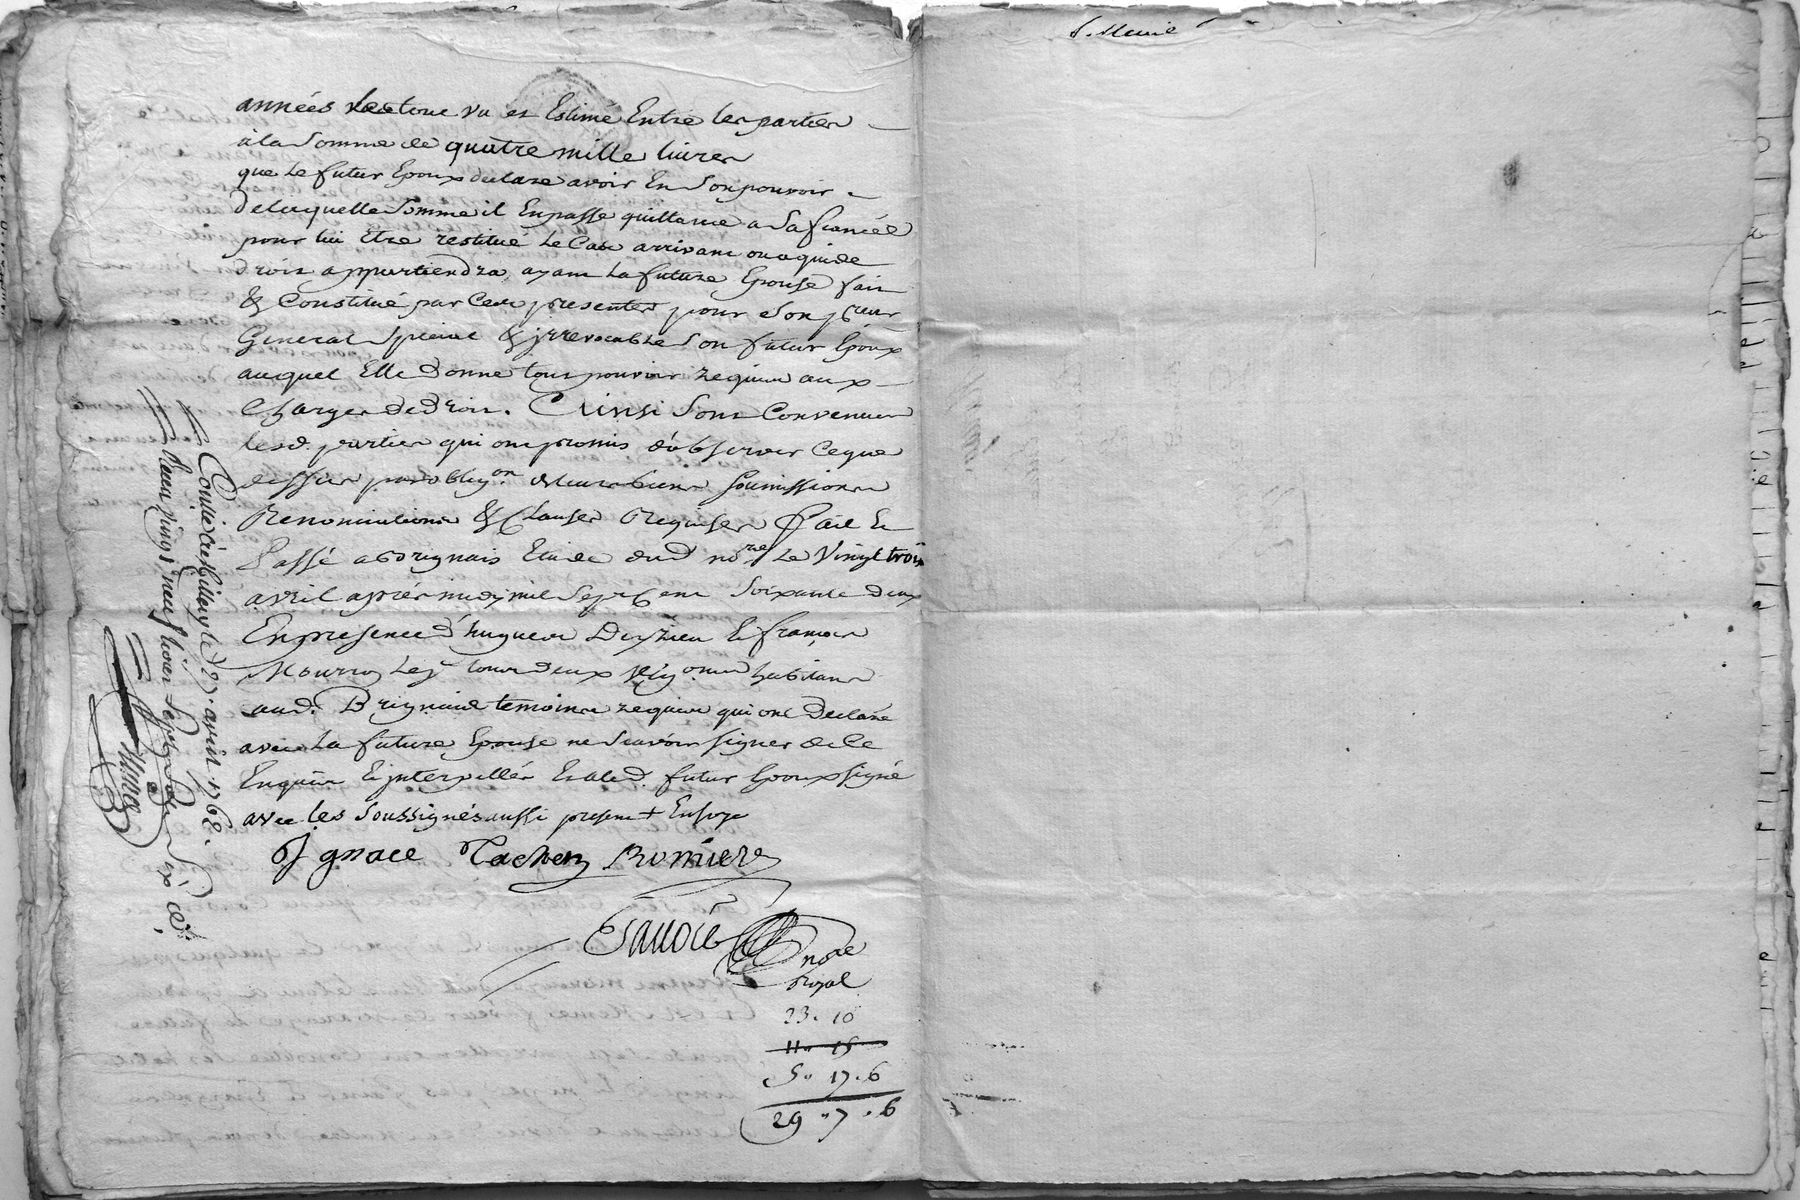 S. Marié
années Lectoure vu et Estimé Entre les parties
a la Somme de quatre mille livres
que Le futur Epoux declare avoir En Son pouvoir
de laquelle Somme il En passe quittance a Sa fiancée
pour lui Etre restitué Le Cas arrivant ou a qui de
droit appartiendra, ayant La future Epouse fait
& Constitué par Ces presentes pour Son preur
General Special & jrrevocable Son futur Epoux
auquel Elle donne tous pouvoir requis aux
Charges de droit. Ainsi Sont Convenues
lesd. parties qui ont promis d'observer Ce que
dessus par oblig.on de leurs biens Soumissions
Renonciations & Clauses Requises fait Et
Passé a Brignais Etude dud nore Le Vingt trois
avril après midy mil Sept Cent Soixante deux
En presence d'hugues Et françois
tous deux habitans
aud. Brignais temoins requis qui ont Declaré
avec La future Epouse ne Scavoir signer de Ce
Enquis Et jnterpellés Et a Led. futur Epoux signé
avec les Soussignés aussi presents
Jgnace
nore
Royal
23. 10
11. 15
5. 17. 6
29. 7. 6
Conllé le 27. avril 1762.
Reçu vingt neuf livres Sept Sols Six d.